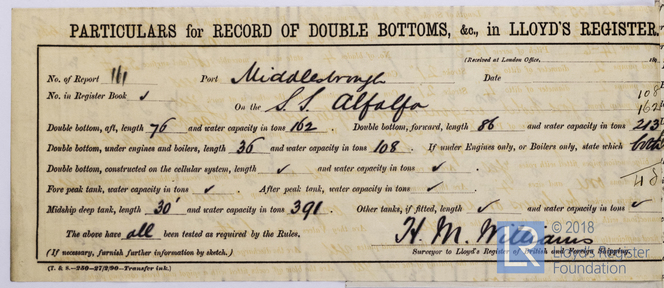 PARTICULARS for RECORD OF DOUBLE BOTTOMS, &c., in LLOYD'S REGISTER.
(Received at London Office, 18
No. of Report 111 Port Middlesbrough Date
No. in Register Book ✓ On the S.S. Alfalfa
108
162
Double bottom, aft, length 76 and water capacity in tons 162. Double bottom, forward, length 86 and water capacity in tons 213
Double bottom, under engines and boilers, length 36 and water capacity in tons 108. If under Engines only, or Boilers only, state which both
Double bottom, constructed on the cellular system, length ✓ and water capacity in tons ✓.
Fore peak tank, water capacity in tons ✓. After peak tank, water capacity in tons ✓.
Midship deep tank, length 30' and water capacity in tons 391. Other tanks, if fitted, length ✓ and water capacity in tons ✓
The above have all been tested as required by the Rules. H. M. Williams
(If necessary, furnish further information by sketch.) Surveyor to Lloyd's Register of British and Foreign Shipping.
(T. & S.—250—27/2/90—Transfer ink.)
LR © 2018
Lloyd's Register
Foundation